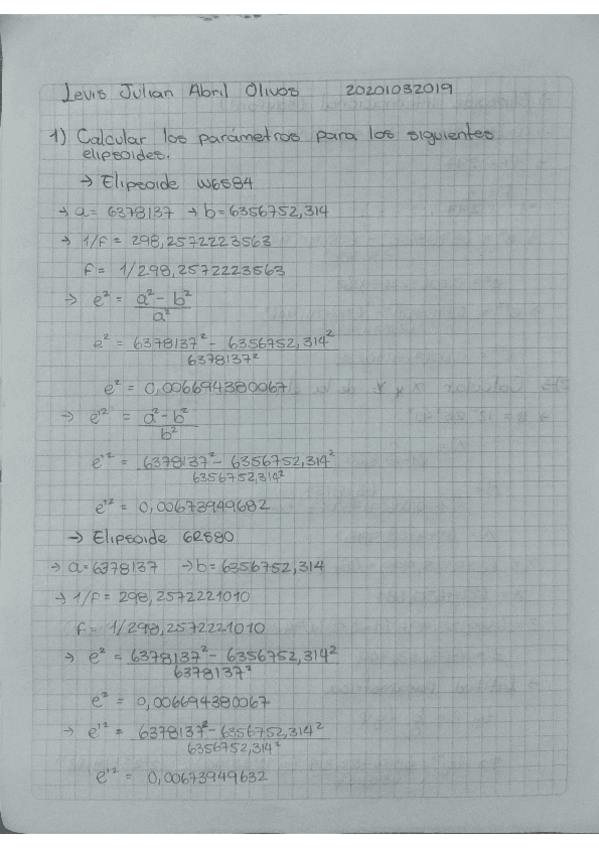 Levis Julian Abril Olivos 20201032019
1) Calcular los parámetros para los siguientes
elipsoides.
→ Elipsoide WGS84
→ a = 6378137 → b = 6356752,314
→ 1/f = 298,2572223563
f = 1/298,2572223563
→ e² = a² - b² / a²
e² = 6378137² - 6356752,314² / 6378137²
e² = 0,006694380067
→ e'² = a² - b² / b²
e'² = 6378137² - 6356752,314² / 6356752,314²
e'² = 0,00673949682
→ Elipsoide GRS80
→ a = 6378137 → b = 6356752,314
→ 1/f = 298,2572221010
f = 1/298,2572221010
→ e² = 6378137² - 6356752,314² / 6378137²
e² = 0,006694380067
→ e'² = 6378137² - 6356752,314² / 6356752,314²
e'² = 0,00673949632